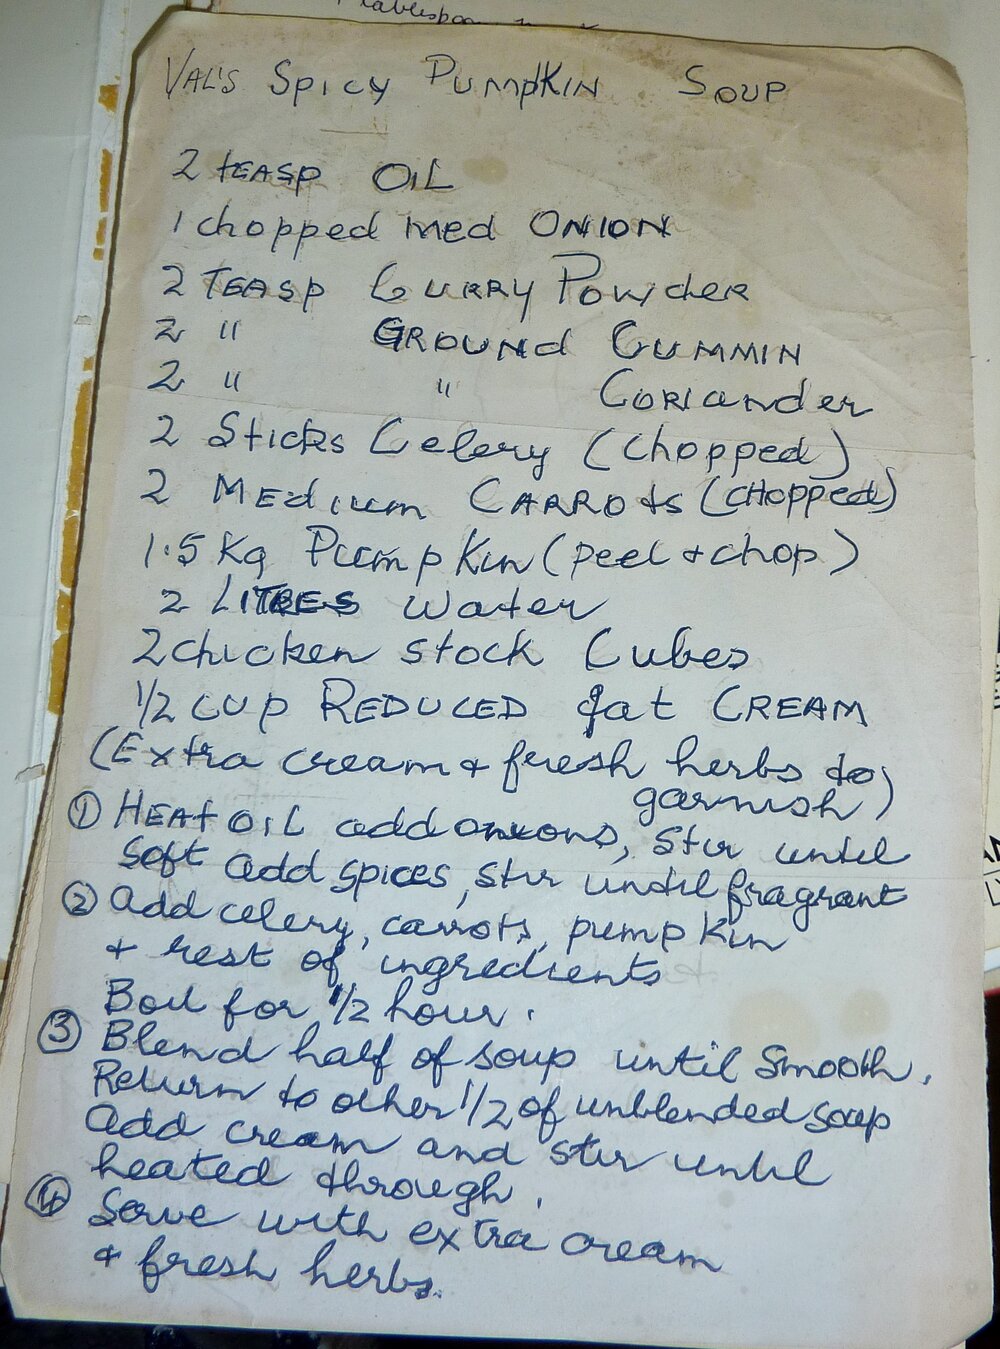 tablespoon
VAL'S SPICY PUMPKIN SOUP
2 TEASP OIL
1 chopped med ONION
2 TEASP CURRY POWDER
2 " GROUND CUMMIN
2 " " CORIANDER
2 Sticks Celery (chopped)
2 MEDIUM CARROTS (CHOPPED)
1.5 Kg PUMPKIN (peel & chop)
2 LITRES Water
2 chicken stock Cubes
1/2 CUP REDUCED fat CREAM
(Extra cream & fresh herbs to
garnish)
① HEAT OIL add onions, stir until
soft add spices, stir until fragrant
② Add celery, carrots, pumpkin
& rest of ingredients
Boil for 1/2 hour.
③ Blend half of soup until smooth.
Return to other 1/2 of unblended soup
Add cream and stir until
heated through.
④ Serve with extra cream
& fresh herbs.